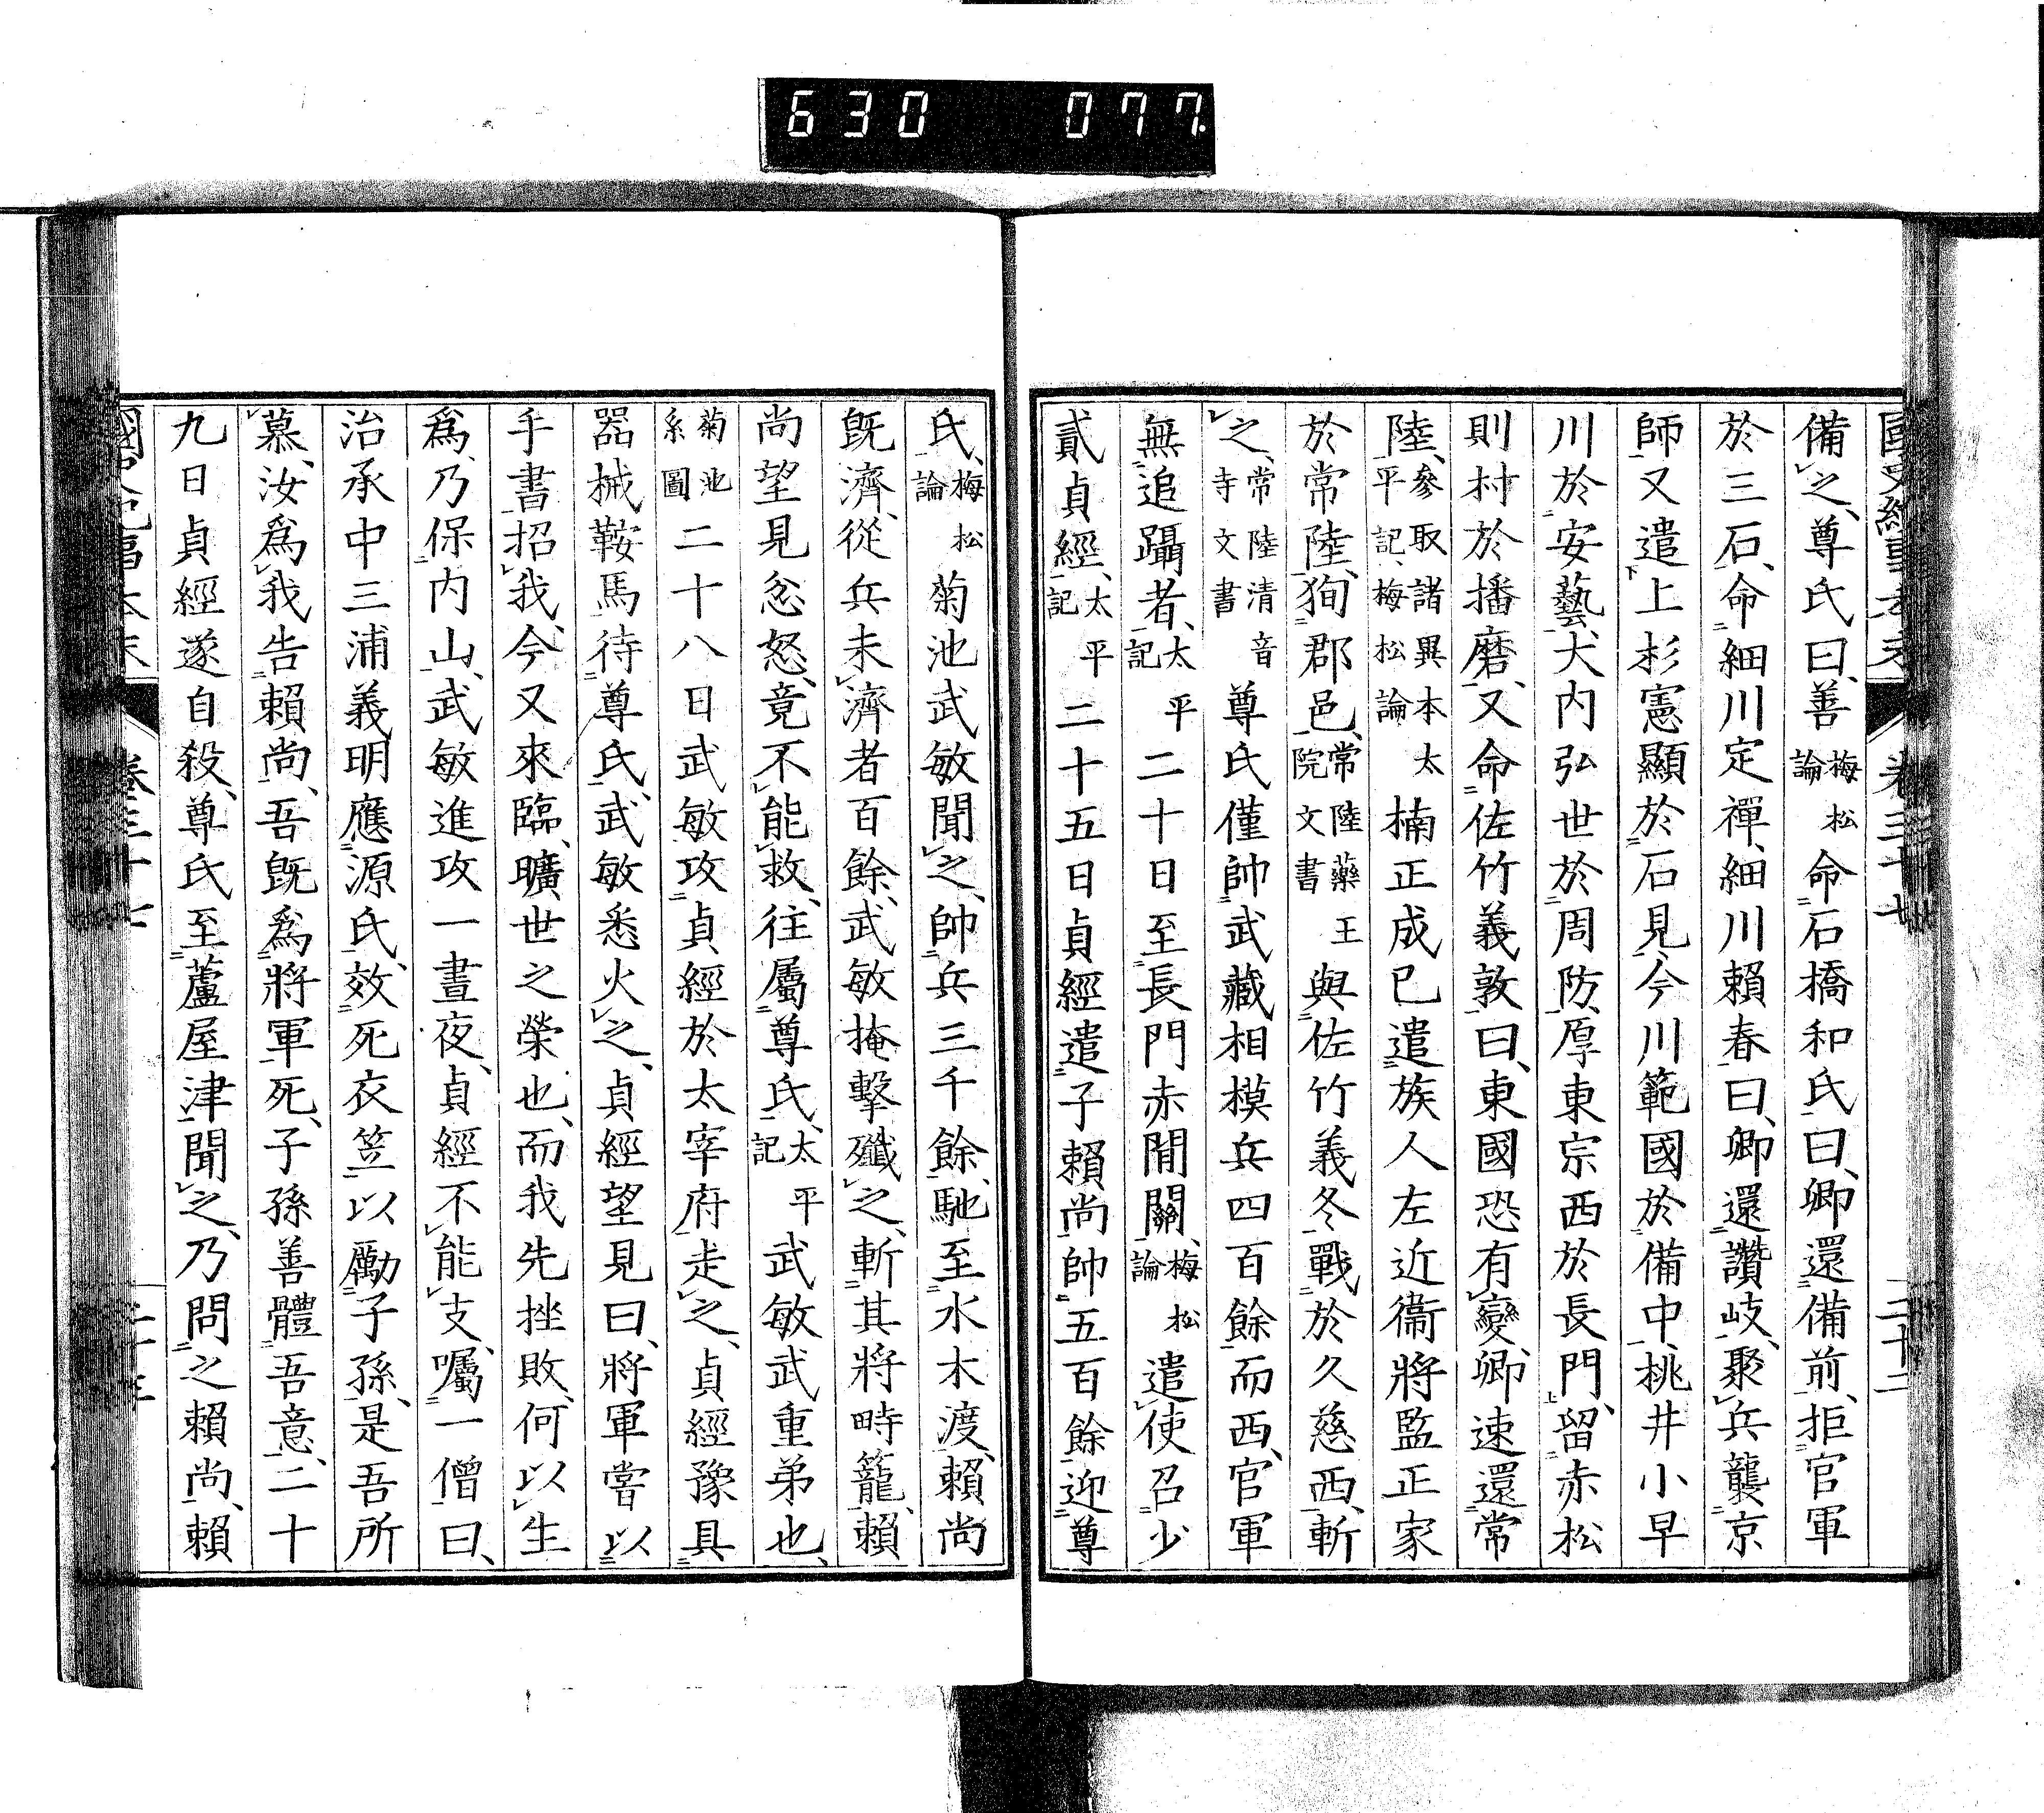 630 077
備之、尊氏曰、善梅松論命石橋和氏曰、卿還備前、拒官軍
於三石、命細川定禪、細川賴春曰、卿還讚岐、聚兵襲京
師、又遣上杉憲顯於石見、今川範國於備中、桃井小早
川於安藝、大內弘世於周防、厚東宗西於長門、留赤松
則村於播磨、又命佐竹義敦曰、東國恐有變、卿速還常
陸、參取諸異本太平記、梅松論楠正成已遣族人左近衞將監正家
於常陸、狥郡邑、常陸藥王院文書與佐竹義冬戰於久慈西、斬
之、常陸清音寺文書尊氏僅帥武藏相模兵四百餘而西、官軍
無追躡者、太平記二十日至長門赤間關、梅松論遣使召少
貳貞經、太平記二十五日貞經遣子賴尚帥五百餘迎尊
氏、梅松論菊池武敏聞之、帥兵三千餘、馳至水木渡、賴尚
既濟、從兵未濟者百餘、武敏掩擊殲之、斬其將畤籠、賴
尚望見忿怒、竟不能救、往屬尊氏、太平記武敏武重弟也、
菊池系圖二十八日武敏攻貞經於太宰府走之、貞經豫具
器械鞍馬待尊氏、武敏悉火之、貞經望見曰、將軍嘗以
手書招我、今又來臨、曠世之榮也、而我先挫敗、何以生
爲、乃保內山、武敏進攻一晝夜、貞經不能支、囑一僧曰、
治承中三浦義明應源氏、效死衣笠以勵子孫、是吾所
慕、汝爲我告賴尚、吾既爲將軍死、子孫善體吾意、二十
九日貞經遂自殺、尊氏至蘆屋津聞之、乃問之賴尚、賴
國史紀事本末 卷三十七